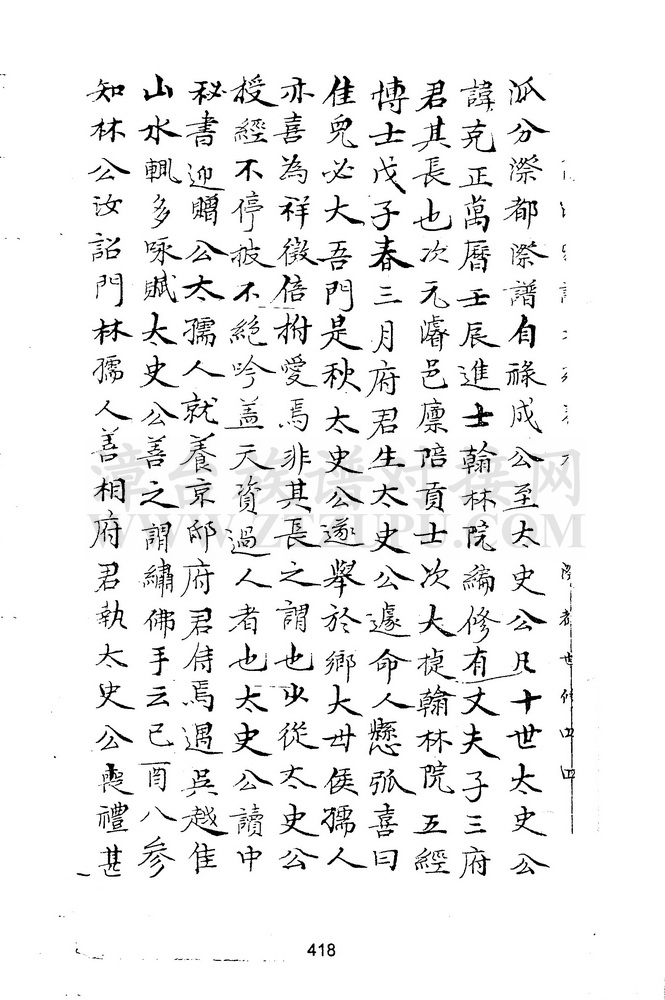 派分漈都漈譜自祿成公至太史公凡十世太史公
諱克正萬曆壬辰進士翰林院編修有丈夫子三府
君其長也次元濬邑廩陪貢士次大楨翰林院五經
博士戊子春三月府君生太史公遽命人懸弧喜曰
佳兒必大吾門是秋太史公遂舉於鄉大母侯孺人
亦喜為祥徵倍拊愛焉非其長之謂也少從太史公
授經不停披不絕吟蓋天資過人者也太史公讀中
秘書迎贈公太孺人就養京邸府君侍焉遇吳越佳
山水輒多咏賦太史公善之謂繡佛手云己酉八參
知林公汝詔門林孺人善相府君執太史公喪禮甚
漳台族谱对接网
WWW.ZTZUPU.COM
418